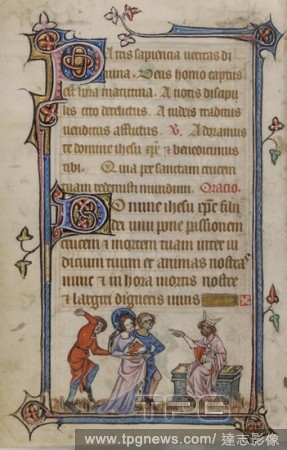 Patris sapiencia veritas di
uina. Deus homo captus
est hora matutina. A notis discipu
lis cito derelictus. A iudeis traditus
uenditus afflictus. V. Adoramus
te domine ihesu xpe & benedicimus
tibi. Quia per sanctam crucem
tuam redemisti mundum. Oracio.
Domine ihesu xpe fili
dei uiui pone passionem
crucem & mortem tuam inter iu
dicium tuum et animas nostras
nunc & in hora mortis nostre
& largiri digneris uiuis
TPG
www.tpgnews.com/ 達志影像